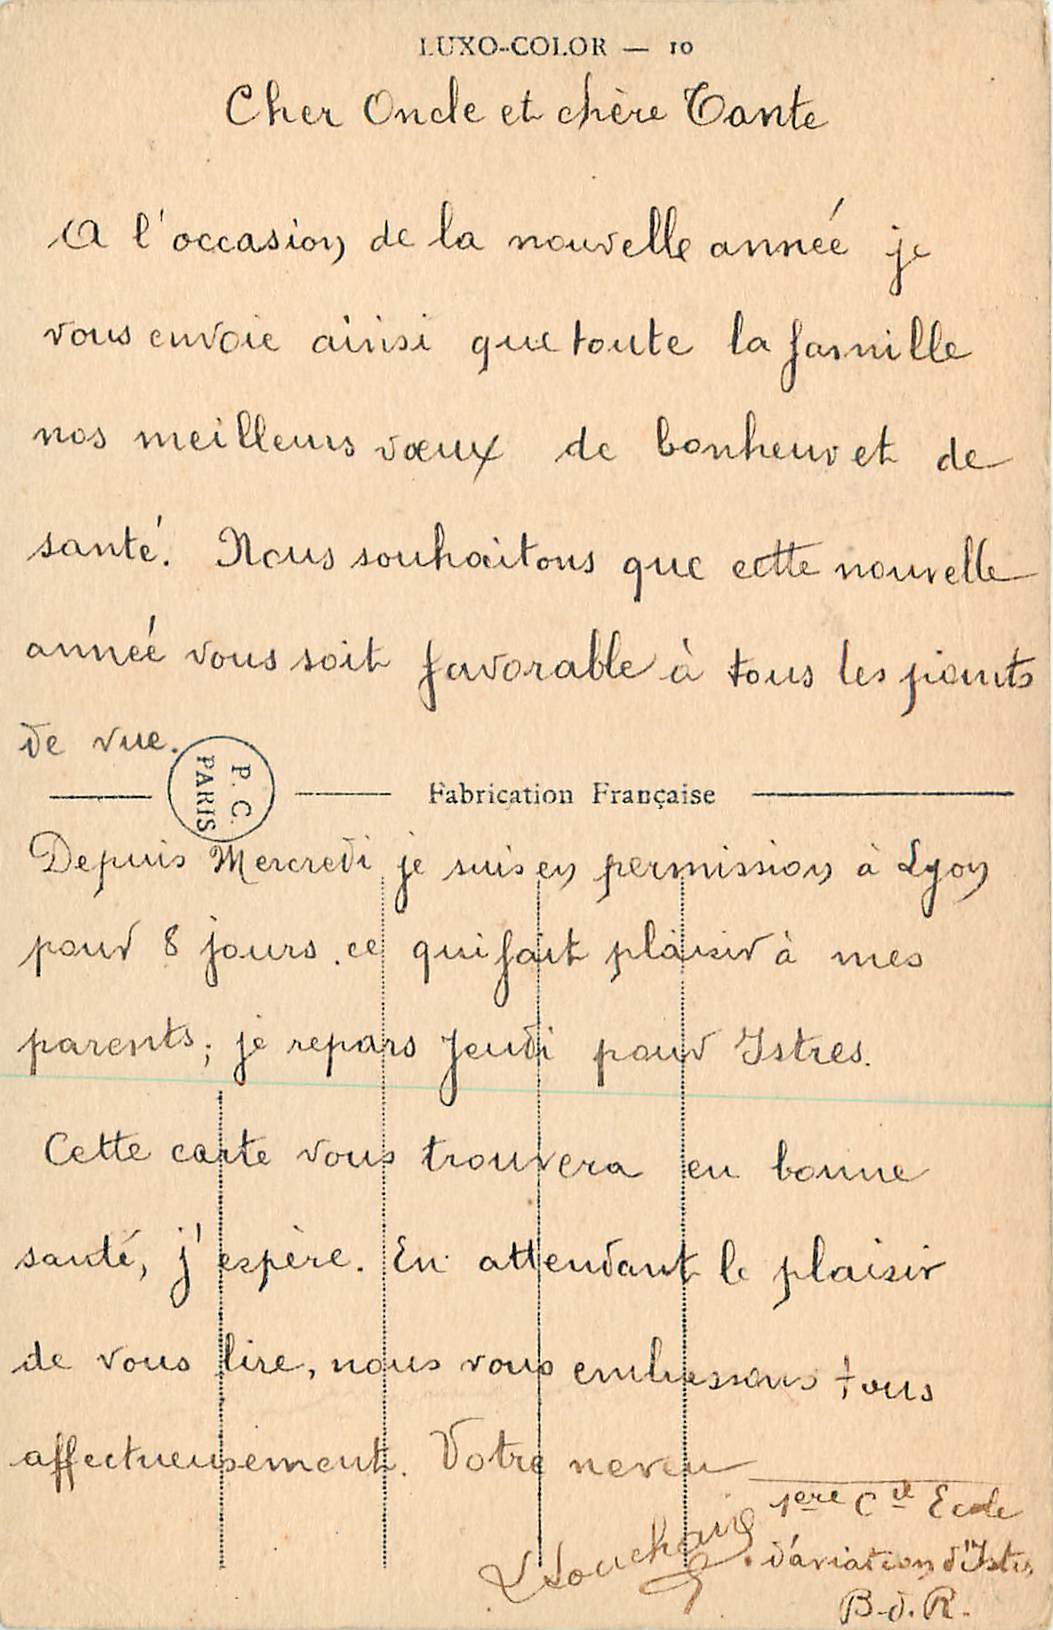 LUXO-COLOR — 10
Cher Oncle et chère Tante
A l'occasion de la nouvelle année je
vous envoie ainsi que toute la famille
nos meilleurs vœux de bonheur et de
santé. Nous souhaitons que cette nouvelle
année vous soit favorable à tous les points
de vue.
P. C.
PARIS
Fabrication Française
Depuis Mercredi je suis en permission à Lyon
pour 8 jours. ce qui fait plaisir à mes
parents; je repars Jeudi pour Istres.
Cette carte vous trouvera en bonne
santé, j'espère. En attendant le plaisir
de vous lire, nous vous embrassons tous
affectueusement. Votre neveu
1ere Cie Ecole
d'aviation d'Istres
B.d.R.